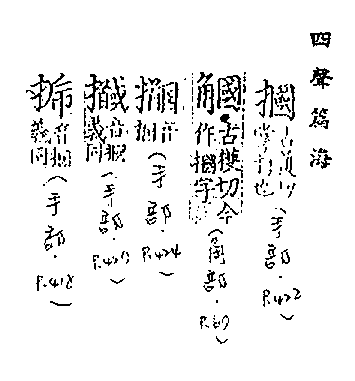 四聲篇海
摑古獲切掌打也(手部.P.422)
古獲切今作摑字(角部.
音摑(手部.P.424)
音摑義同(手部.
音摑義同(手部.P.418)